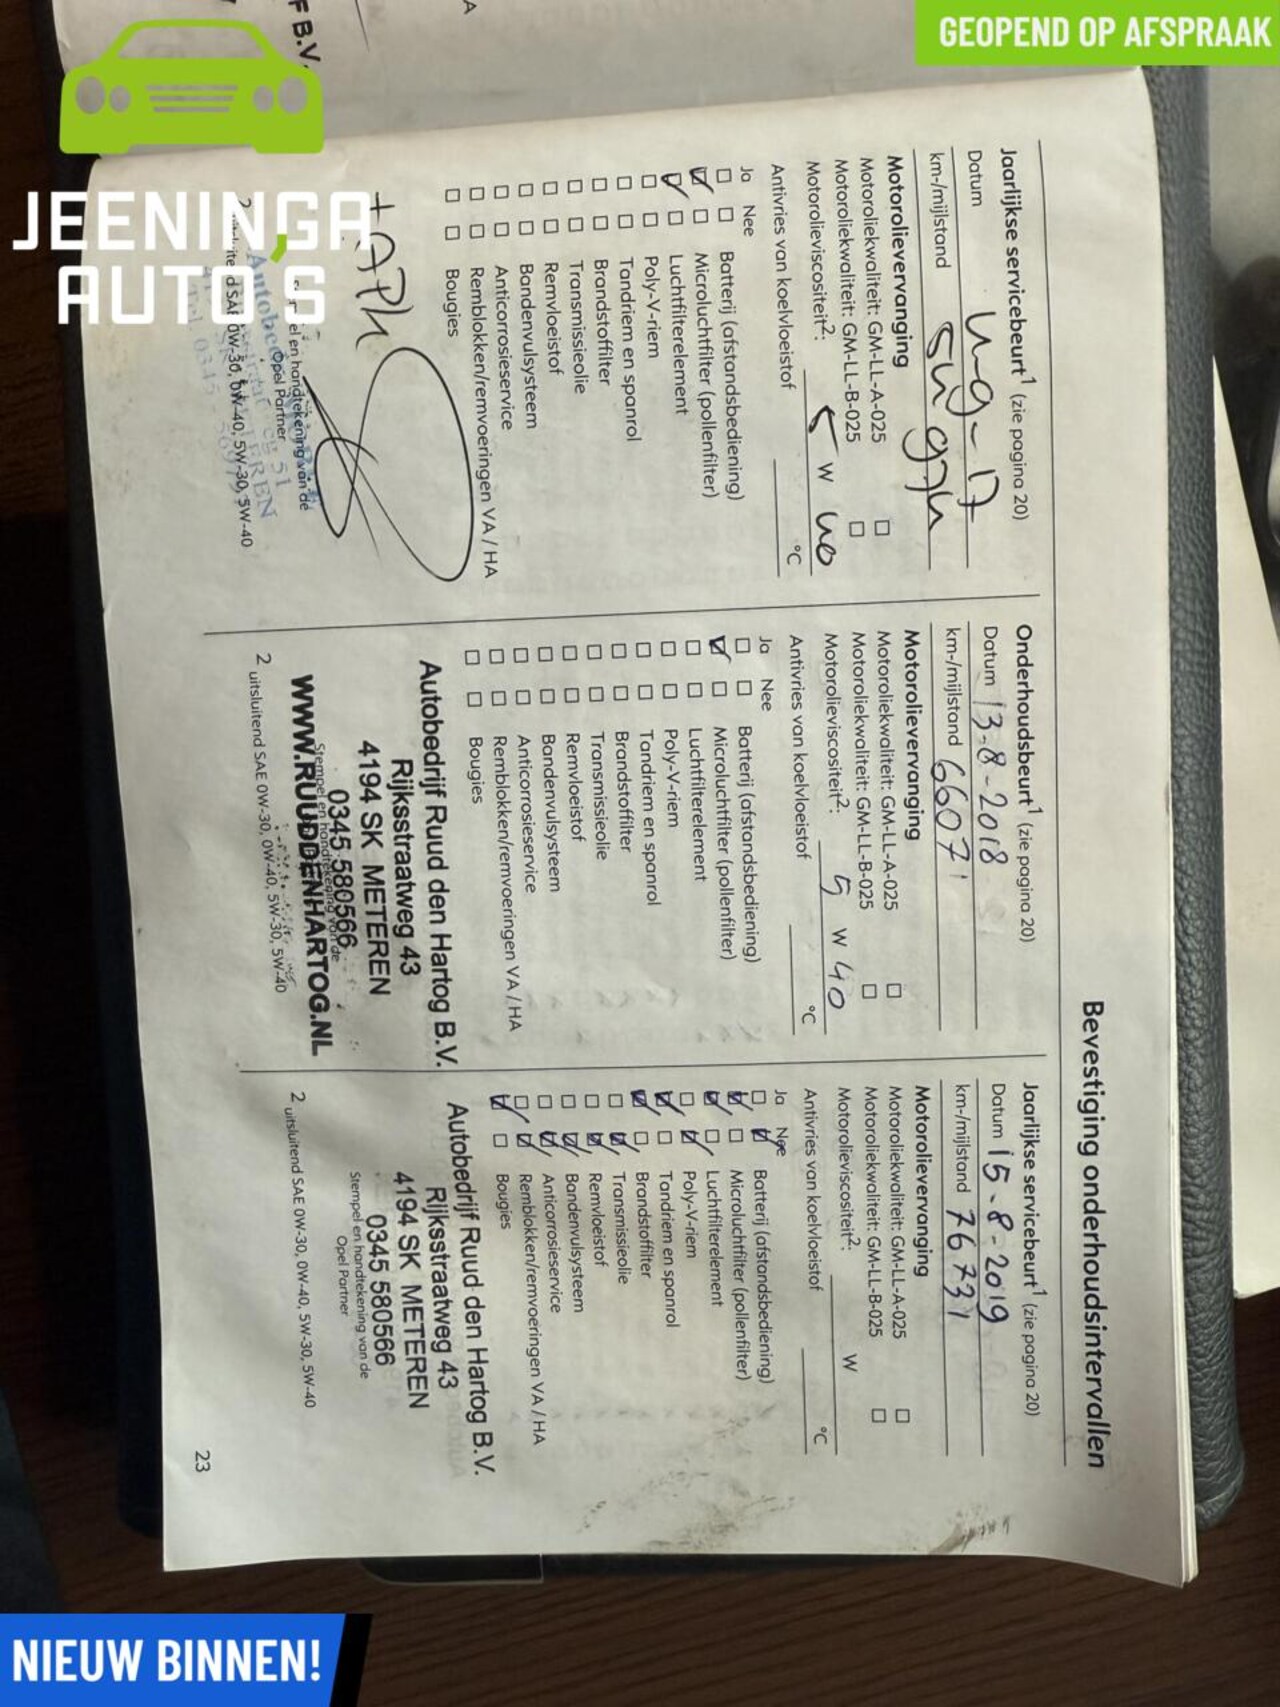 GEOPEND OP AFSPRAAK
JEENINGA
AUTO'S
F B.V.
Bevestiging onderhoudsintervallen
Jaarlijkse servicebeurt¹ (zie pagina 20)
Datum
km-/mijlstand
Motorolievervanging
Motoroliekwaliteit: GM-LL-A-025 □
Motoroliekwaliteit: GM-LL-B-025 □
Motorolieviscositeit²: 5 W 40
Antivries van koelvloeistof °C
Ja Nee
Batterij (afstandsbediening)
Microluchtfilter (pollenfilter)
Luchtfilterelement
Poly-V-riem
Tandriem en spanrol
Brandstoffilter
Transmissieolie
Remvloeistof
Bandenvulsysteem
Anticorrosieservice
Remblokken/remvoeringen VA / HA
Bougies
+ APK
en handtekening van de
Opel Partner
0W-30, 0W-40, 5W-30, 5W-40
Onderhoudsbeurt¹ (zie pagina 20)
Datum 13-8-2018
km-/mijlstand 66071
Motorolievervanging
Motoroliekwaliteit: GM-LL-A-025 □
Motoroliekwaliteit: GM-LL-B-025 □
Motorolieviscositeit²: 5 W 40
Antivries van koelvloeistof °C
Ja Nee
Batterij (afstandsbediening)
Microluchtfilter (pollenfilter)
Luchtfilterelement
Poly-V-riem
Tandriem en spanrol
Brandstoffilter
Transmissieolie
Remvloeistof
Bandenvulsysteem
Anticorrosieservice
Remblokken/remvoeringen VA / HA
Bougies
Autobedrijf Ruud den Hartog B.V.
Rijksstraatweg 43
4194 SK METEREN
0345 580566
Stempel en handtekening van de
WWW.RUUDDENHARTOG.NL
2 uitsluitend SAE 0W-30, 0W-40, 5W-30, 5W-40
Jaarlijkse servicebeurt¹ (zie pagina 20)
Datum 15-8-2019
km-/mijlstand 76731
Motorolievervanging
Motoroliekwaliteit: GM-LL-A-025 □
Motoroliekwaliteit: GM-LL-B-025 □
Motorolieviscositeit²: W
Antivries van koelvloeistof °C
Ja Nee
Batterij (afstandsbediening)
Microluchtfilter (pollenfilter)
Luchtfilterelement
Poly-V-riem
Tandriem en spanrol
Brandstoffilter
Transmissieolie
Remvloeistof
Bandenvulsysteem
Anticorrosieservice
Remblokken/remvoeringen VA / HA
Bougies
Autobedrijf Ruud den Hartog B.V.
Rijksstraatweg 43
4194 SK METEREN
0345 580566
Stempel en handtekening van de
Opel Partner
2 uitsluitend SAE 0W-30, 0W-40, 5W-30, 5W-40
23
NIEUW BINNEN!